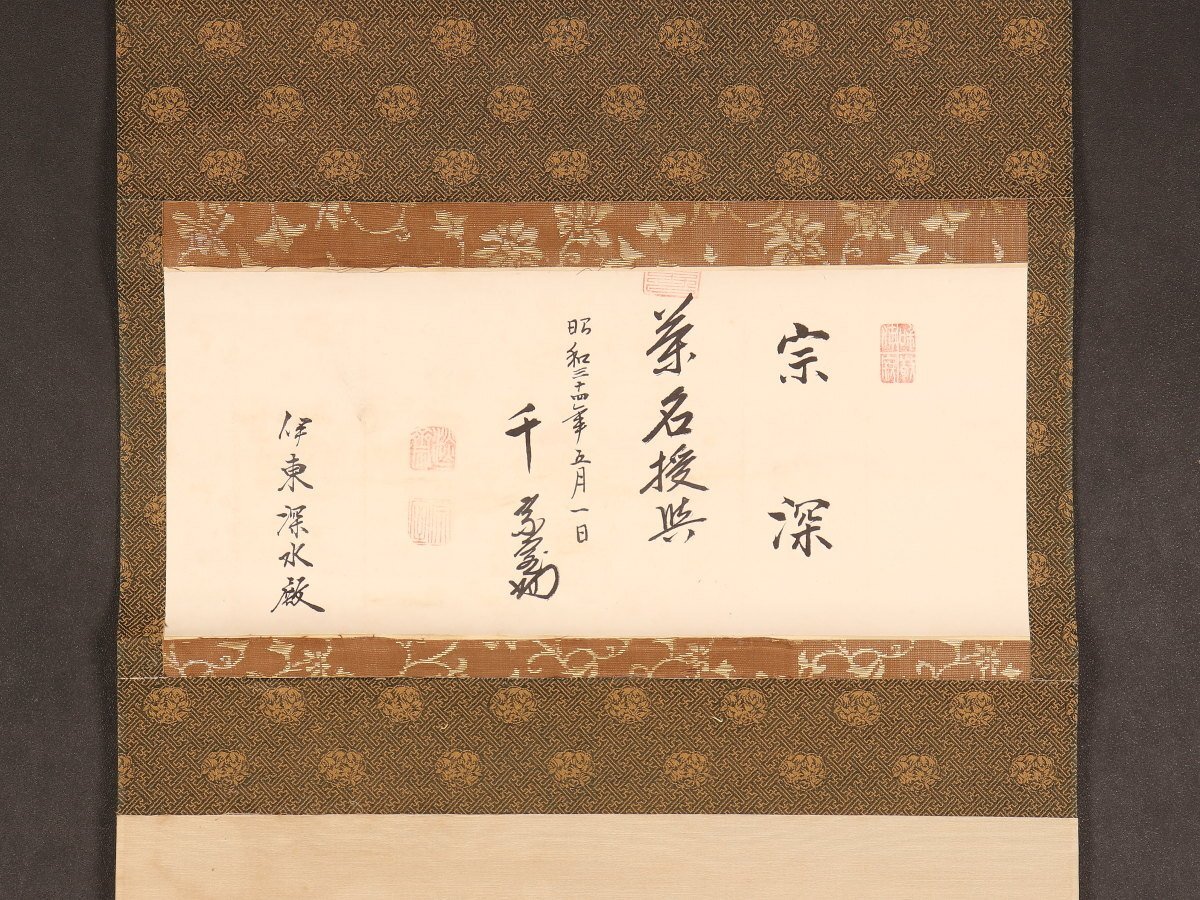 宗深
茶名授與
昭和三十四年五月一日
千宗
伊東深水殿